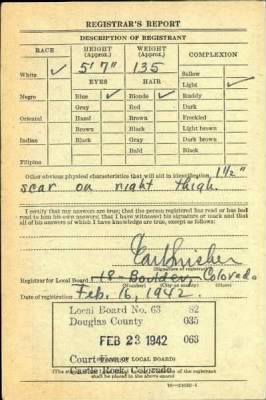 REGISTRAR'S REPORT
DESCRIPTION OF REGISTRANT
RACE HEIGHT (Approx.) WEIGHT (Approx.) COMPLEXION
5' 7" 135 Sallow
White ✓ EYES HAIR Light ✓
Negro Blue ✓ Blonde ✓ Ruddy
Gray Red Dark
Oriental Hazel Brown Freckled
Brown Black Light brown
Indian Black Gray Dark brown
Bald Black
Filipino
Other obvious physical characteristics that will aid in identification 1½"
scar on right thigh.
I certify that my answers are true; that the person registered has read or has had
read to him his own answers; that I have witnessed his signature or mark and that
all of his answers of which I have knowledge are true, except as follows:
(Signature of registrar)
Registrar for Local Board 18 - Boulder, Colorado
(Number) (City or county) (State)
Date of registration Feb. 16, 1942.
Local Board No. 63 82
Douglas County 035
FEB 23 1942 063
Court House
(STAMP OF LOCAL BOARD)
Castle Rock, Colorado
shall be placed in the above space)